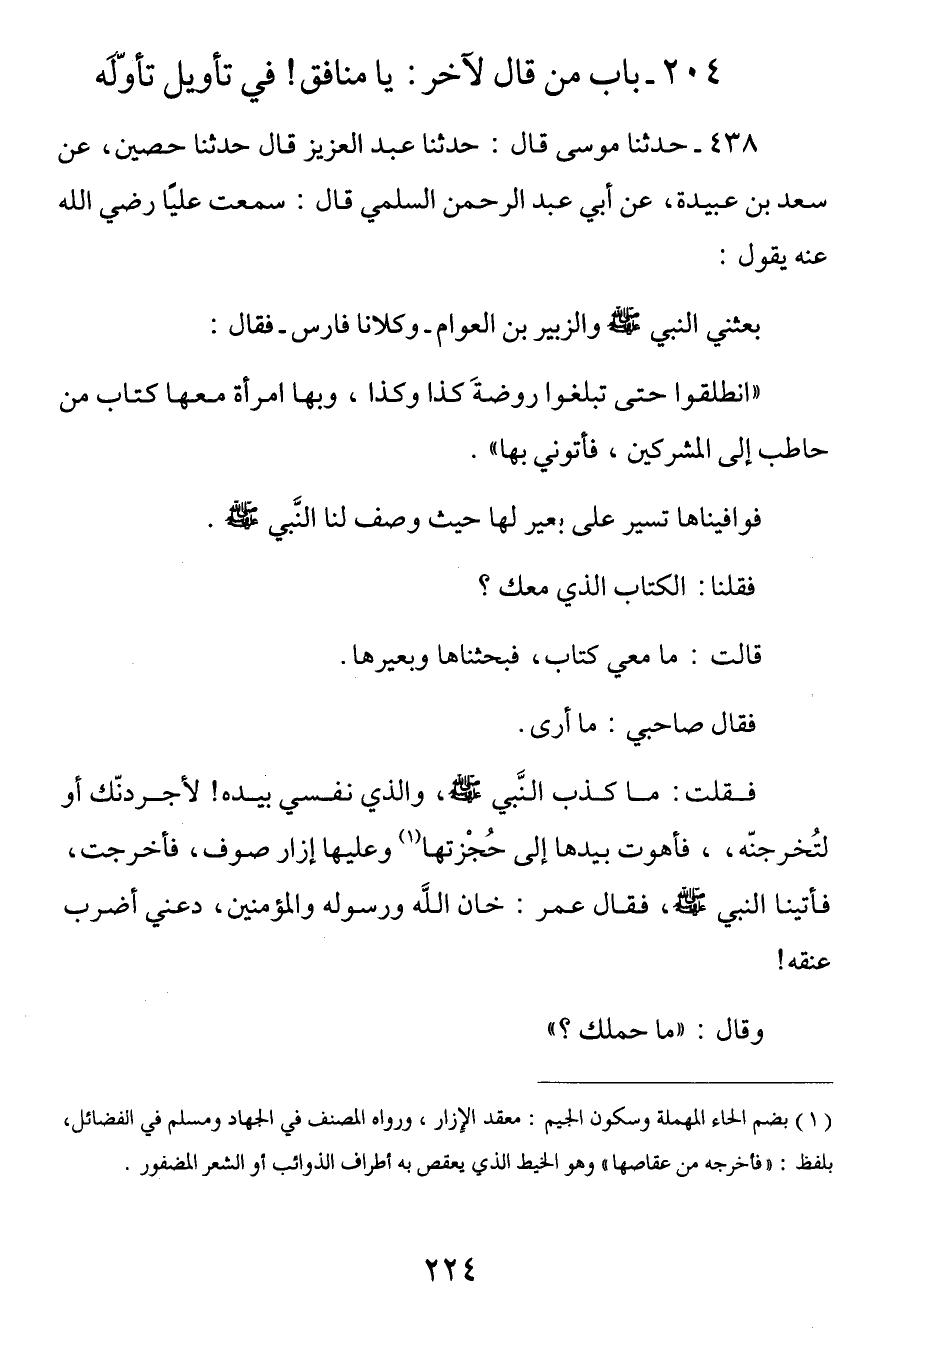 ٢٠٤ ـ باب من قال لآخر : يا منافق! في تأويل تأوّلَه
٤٣٨ ـ حدثنا موسى قال : حدثنا عبد العزيز قال حدثنا حصين، عن
سعد بن عبيدة، عن أبي عبد الرحمن السلمي قال : سمعت عليًا رضي الله
عنه يقول :
بعثني النبي ﷺ والزبير بن العوام ـ وكلانا فارس ـ فقال :
«انطلقوا حتى تبلغوا روضةَ كذا وكذا ، وبها امرأة معها كتاب من
حاطب إلى المشركين ، فأتوني بها» .
فوافيناها تسير على بعير لها حيث وصف لنا النَّبي ﷺ .
فقلنا : الكتاب الذي معك ؟
قالت : ما معي كتاب، فبحثناها وبعيرها .
فقال صاحبي : ما أرى .
فقلت : ما كذب النَّبي ﷺ، والذي نفسي بيده! لأجردنّك أو
لتُخرجنّه، ، فأهوت بيدها إلى حُجْزتها(١) وعليها إزار صوف، فأخرجت،
فأتينا النبي ﷺ، فقال عمر : خان اللَّه ورسوله والمؤمنين، دعني أضرب
عنقه!
وقال : «ما حملك ؟»
(١) بضم الحاء المهملة وسكون الجيم : معقد الإزار ، ورواه المصنف في الجهاد ومسلم في الفضائل،
بلفظ : «فأخرجه من عقاصها» وهو الخيط الذي يعقص به أطراف الذوائب أو الشعر المضفور .
٢٢٤